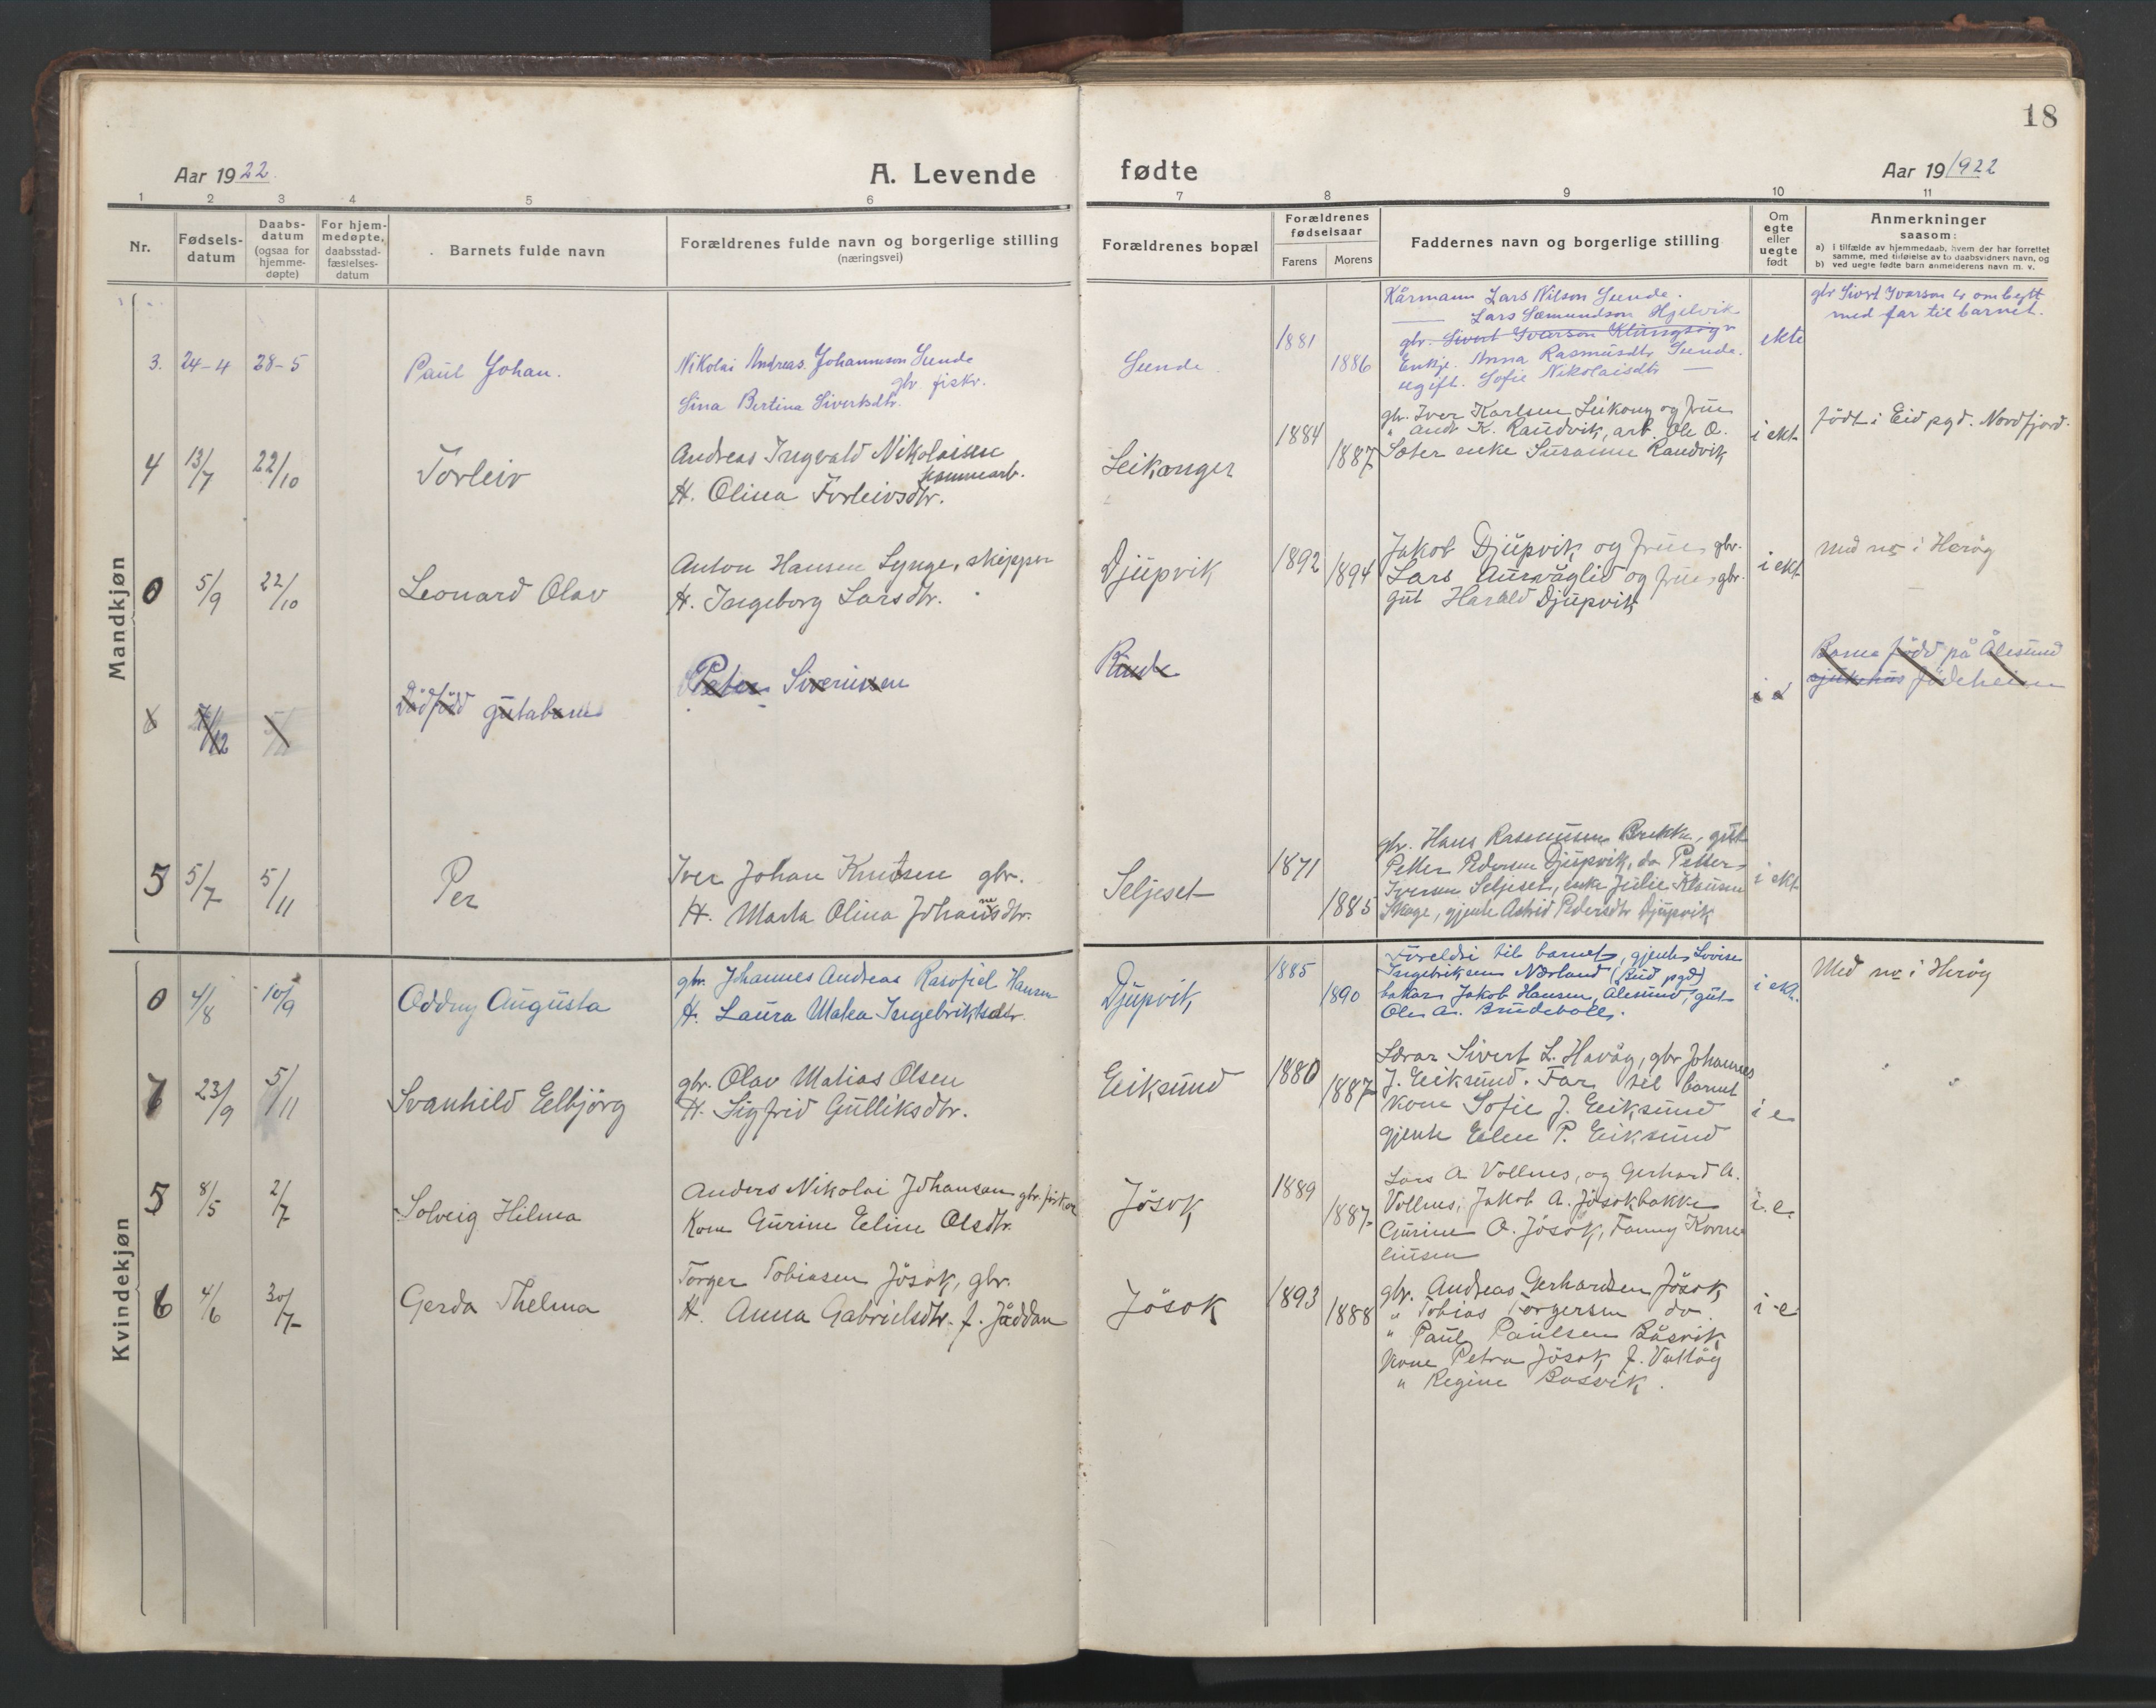 18
Aar 1922
A. Levende fødte
Aar 19 1922
1 2 3 4 5 6 7 8 9 10 11
Nr.
Fødsels-
datum
Daabs-
datum
(ogsaa for
hjemme-
døpte)
For hjem-
medøpte,
daabsstad-
fæstelses-
datum
Barnets fulde navn
Forældrenes fulde navn og borgerlige stilling
(næringsvei)
Forældrenes bopæl
Forældrenes
fødselsaar
Farens
Morens
Faddernes navn og borgerlige stilling
Om
egte
eller
uegte
født
Anmerkninger
saasom:
a) i tilfælde av hjemmedaab, hvem der har forrettet
samme, med tilføielse av to daabsvidners navn, og
b) ved uegte fødte barn anmelderens navn m. v.
Mandkjøn
3. 24-4 28-5
Paul Johan.
Nikolai Andreas Johannson Sunde
gbr. fiskr.
Sina Bertina Sivertsdtr.
Sunde.
1881
1886
Kårmann Lars Nilson Sunde.
— Lars Sæmundson Hjelvik
gbr. Sivert Ivarson Klungsøyr
Enkje. Anna Rasmusdtr Sunde.
ugift. Sofie Nikolaisdtr —
ekte
gbr Sivert Ivarson er ombytt
med far til barnet.
4 13/7 22/10
Torleiv
Andreas Ingvald Nikolaisen
H. Olina Torleivsdtr.
Leikanger
1884
1887
gbr. Iver Karlsen Leikong og frue
" Andr K. Randvik, arb. Ole O.
Sæter enke Susanne Randvik
i ekt
födt i Eid pgd. Nordfjord.
0 5/9 22/10
Leonard Olav
Anton Hansen Lynge, skipper
H. Ingeborg Larsdtr.
Djupvik
1892
1894
Jakob Djupvik og frue, gbr.
Lars Aurvåglid og frue, gbr.
gut Harald Djupvik
i ekt
Med nr i Heröy
x 7/12
Dödfödd gutabarn
Peter Siverinsen
Runde
Barne född på Ålesund
sjukehus födeheim
5 5/7 5/11
Per
Iver Johan Knutsen gbr.
H. Marta Olina Johannesdtr.
Seljeset
1871
1885
gbr. Hans Rasmussen Brekke, gut
Petter Pedersen Djupvik, do Petter
Iversen Seljeset, enke Julie Klausen
Skage, gjente Astrid Pedersdtr Djupvik
i ekt
Kvindekjøn
0 4/8 10/9
Oddny Augusta
gbr. Johannes Andreas Hansen
H. Laura Matea Ingebriktsdtr.
Djupvik
1885
1890
Foreldri til barnet, gjente Lovise
Ingebriksen Nærland (Bud pgd)
bakar Jakob Hansen, Ålesund, gut
Ole A. Brudevoll.
i ekt.
Med nr i Heröy
7 23/9 5/11
Svanhild Elbjörg
gbr. Olav Matias Olsen
H. Sigfrid Gulliksdtr.
Eiksund
1880
1887
Lærar Sivert L. Havåg, gbr Johannes
J. Eiksund. Far til barnet
kone Sofie J. Eiksund
gjente Elen P. Eiksund
i e
5 8/5 2/7
Solveig Hilma
Anders Nikolai Johansen gbr. fisker
Kone Gurine Eline Olsdtr.
Jösok
1889
1887
Lars A Vollnes, og Gerhard A.
Vollnes, Jakob A. Jösokbakke
Gurine O. Jösok, Fanny Korne-
liusen
i. e.
6 4/6 30/7
Gerda Thelma
Torger Tobiasen Jösok, gbr.
H. Anna Gabrielsdtr. f. Jøddan
Jösok
1893
1888
gbr. Andreas Gerhardsen Jösok
" Tobias Torgersen do
" Paul Paulsen Båsvik
Kone Petra Jösok f. Vattöy
" Regine Bosvik.
i e